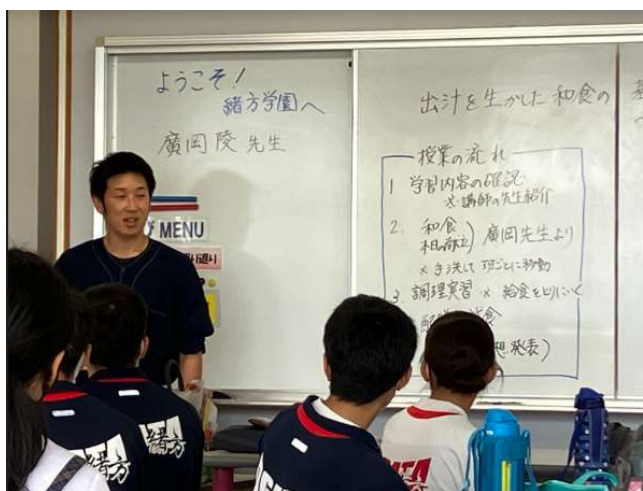 ようこそ!
緒方学園へ
廣岡陵先生
MENU
出汁を生かした和食の
授業の流れ
1 学習内容の確認
※講師の先生紹介
2. 和食
廣岡先生より
※手洗して班ごとに移動
3. 調理実習 ※給食をとりにいく
食
想発表)
緒方
緒方